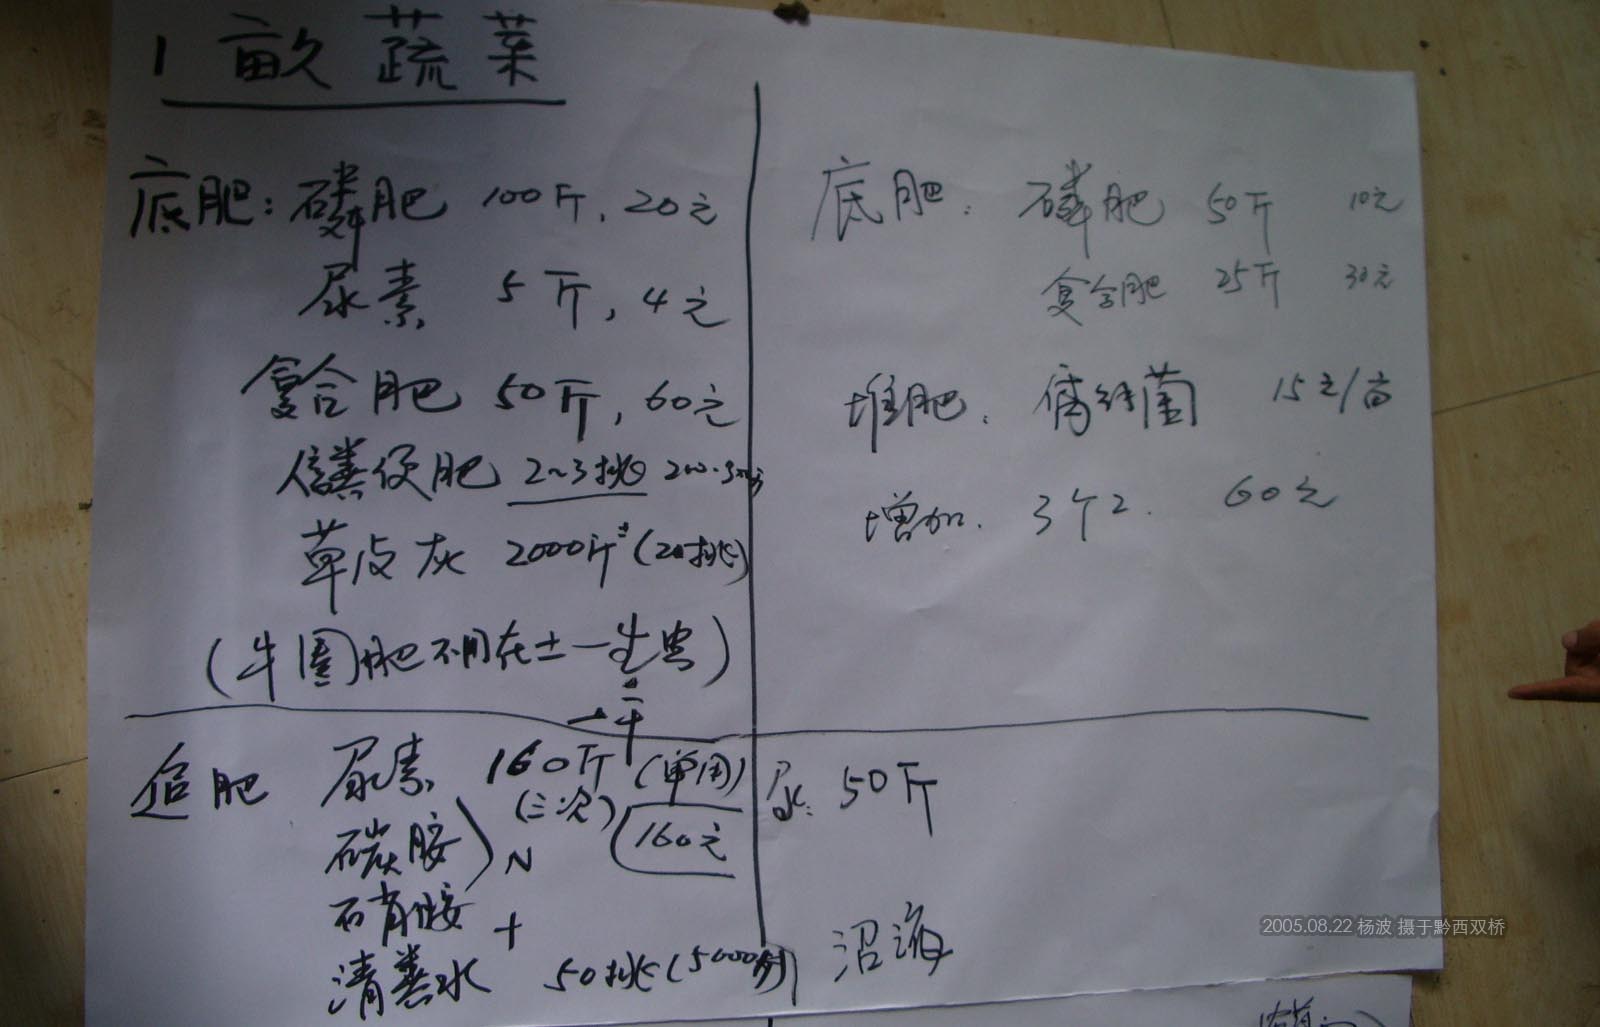 1亩蔬菜
底肥：磷肥 100斤，20元
尿素 5斤，4元
复合肥 50斤，60元
粪便肥 2~3挑
草皮灰 2000斤（20挑）
（牛圈肥不用在土一生虫）
追肥 尿素 160斤（单用）
（三次） 160元
碳胺 N
硝胺 +
清粪水 50挑（5000斤）
底肥：磷肥 50斤 10元
复合肥 25斤 30元
堆肥：菌 15元/亩
增加. 3个工. 60元
尿: 50斤
沼液
2005.08.22 杨波 摄于黔西双桥